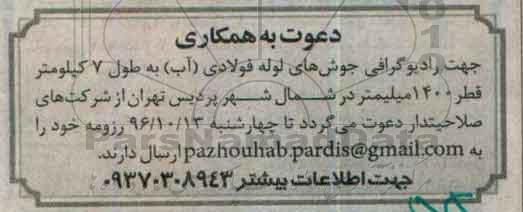 دعوت به همکاری
جهت رادیوگرافی جوش های لوله فولادی (آب) به طول ۷ کیلومتر
قطر ۱۴۰۰میلیمتر در شمال شهر پردیس تهران از شرکت‌های
صلاحیتدار دعوت می‌گردد تا چهارشنبه ۹۶/۱۰/۱۳ رزومه خود را
به pazhouhab.pardis@gmail.com ارسال دارند.
جهت اطلاعات بیشتر ۰۹۳۷۰۳۰۸۹۴۳
ParsNamadData